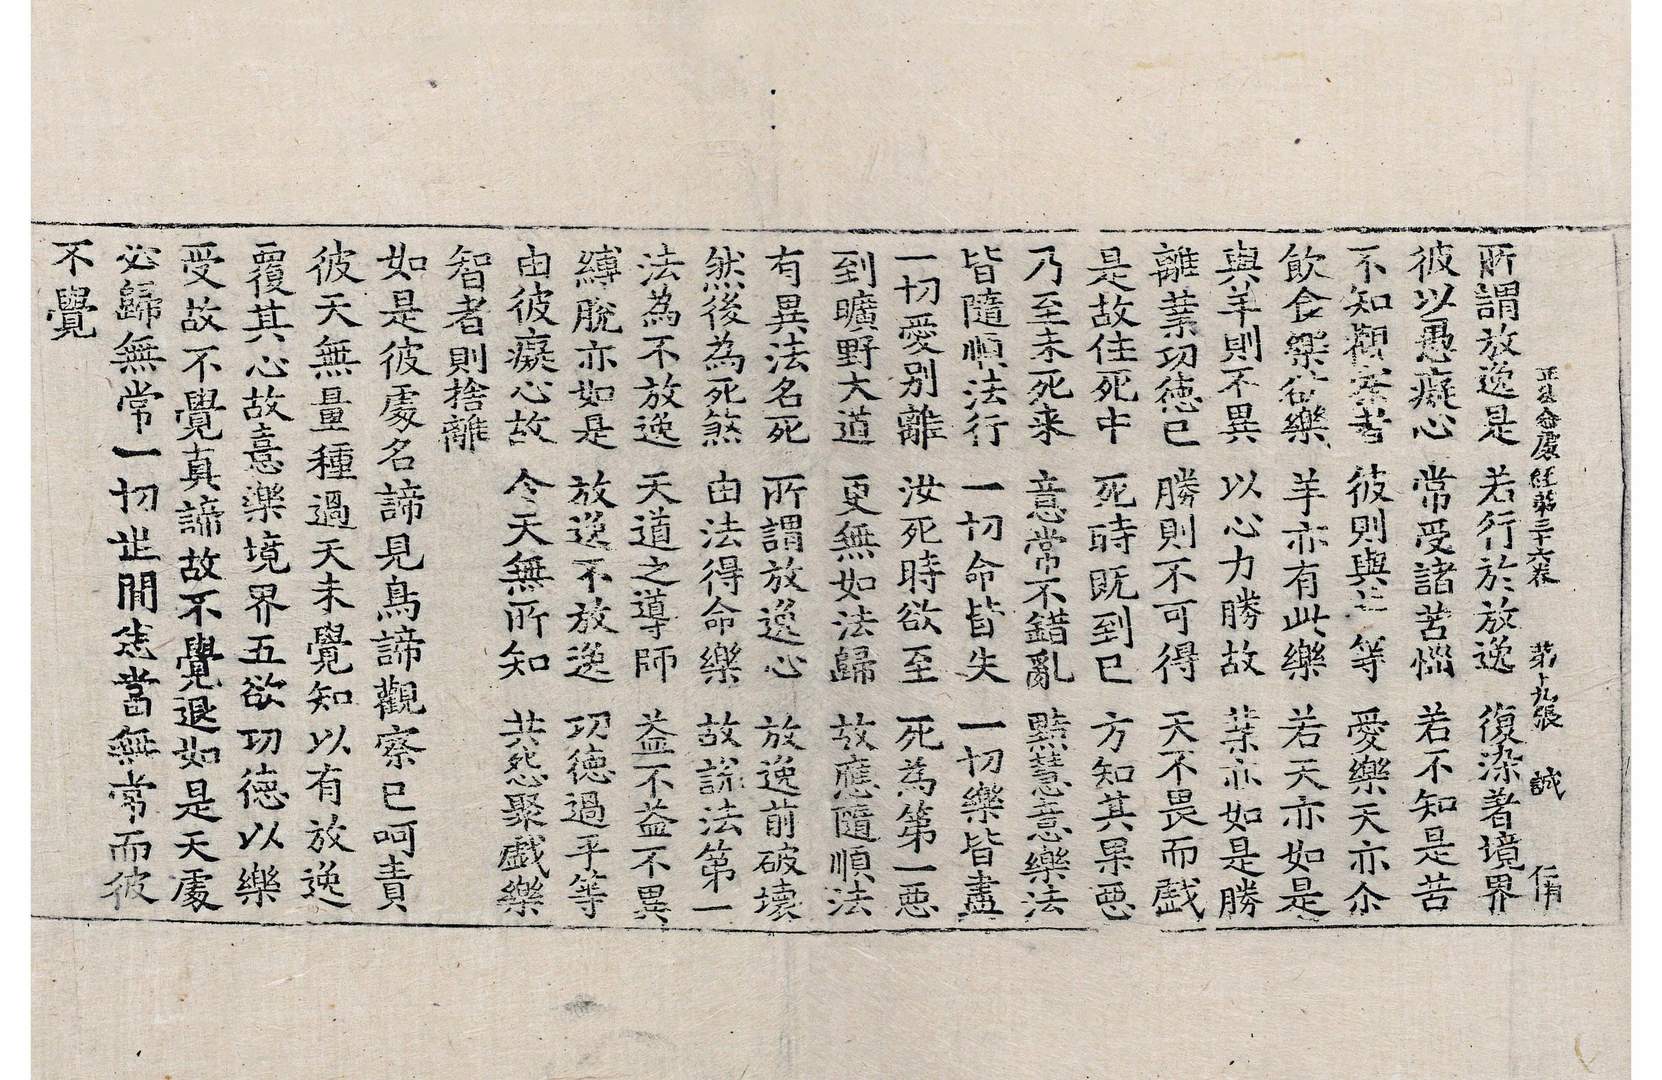 正法念處經第三十六卷 第十九張 誠 仁甫
所謂放逸是 若行於放逸 復染著境界
彼以愚癡心 常受諸苦惱 若不知是苦
不知觀察者 彼則與羊等 愛樂天亦尒
飲食樂欲樂 羊亦有此樂 若天亦如是
與羊則不異 以心力勝故 業亦如是勝
離業功德已 勝則不可得 天不畏而戱
是故住死中 死時既到已 方知其果惡
乃至未死来 意常不錯亂 黠慧意樂法
皆隨順法行 一切命皆失 一切樂皆盡
一切愛別離 汝死時欲至 死為第一惡
到曠野大道 更無如法歸 故應隨順法
有異法名死 所謂放逸心 放逸前破壞
然後為死煞 由法得命樂 故說法第一
法為不放逸 天道之導師 益不益不異
縛脫亦如是 放逸不放逸 功德過平等
由彼癡心故 今天無所知 共怨聚戱樂
智者則捨離
如是彼處名諦見鳥諦觀察已呵責
彼天無量種過天未覺知以有放逸
覆其心故意樂境界五欲功德以樂
受故不覺真諦故不覺退如是天處
必歸無常一切世間悉當無常而彼
不覺